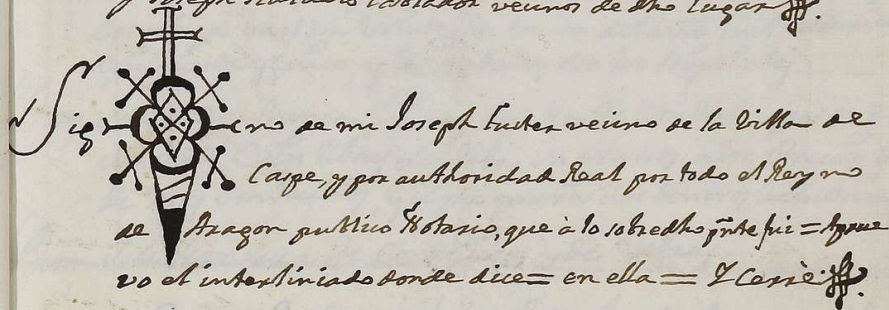 y Joseph labrador vecinos de dho lugar
Sig no de mi Joseph Fuster vecino de la Villa de
Caspe, y por authoridad Real por todo el Reyno
de Aragon publico Notario, que à lo sobredho pnte fui = Aprue
vo el interliniado donde dice = en ella = Y Cerrè